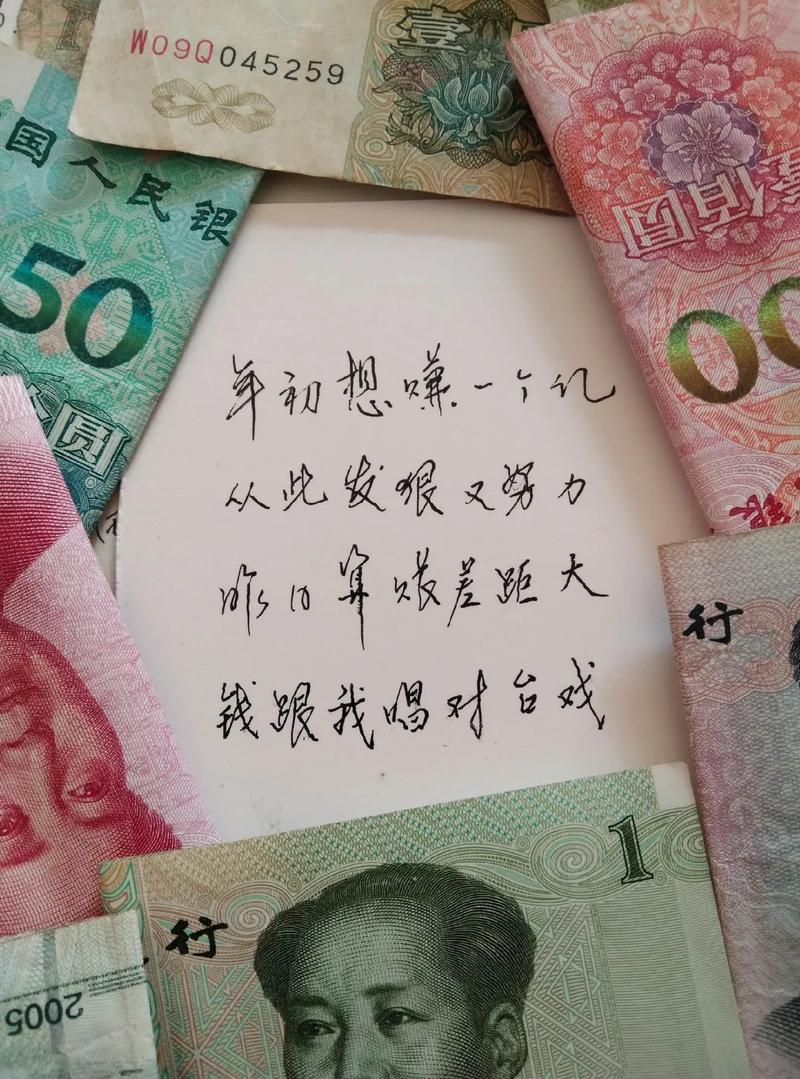 W09Q045259
壹
中国人民银
50
圆
佰圆
00
年初想赚一个亿
从此发狠又努力
昨日算账差距大
钱跟我唱对台戏
行
1
行
2005